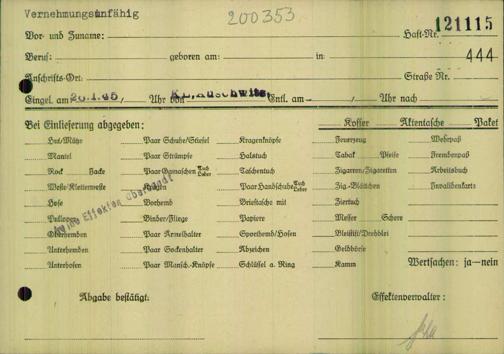 Vernehmungsunfähig 200353
Vor- und Zuname: Haft-Nr. 121115
Beruf: geboren am: in: 444
Anschrifts-Ort: Straße Nr.
Eingel. am 26.1.45, Uhr von KL. Auschwitz Entl. am Uhr nach
Bei Einlieferung abgegeben: Koffer Aktentasche Paket
Hut/Mütze Paar Schuhe/Stiefel Kragenknöpfe Feuerzeug Wehrpaß
Mantel Paar Strümpfe Halstuch Tabak Pfeife Fremdenpaß
Rock Jacke Paar Gamaschen Tuch Leder Taschentuch Zigarren/Zigaretten Arbeitsbuch
Weste/Kletterweste Kragen Paar Handschuhe Tuch Leder Zig.-Blättchen Invalidenkarte
Hose Vorhemd Brieftasche mit Ziertuch
Pullover Binder/Fliege Papiere Messer Schere
Oberhemden Paar Ärmelhalter Sporthemd/Hosen Bleistift/Drehblei
Unterhemden Paar Sockenhalter Abzeichen Geldbörse
Unterhosen Paar Mansch.-Knöpfe Schlüssel a. Ring Kamm Wertsachen: ja—nein
Keine Effekten überbracht
Abgabe bestätigt: Effektenverwalter: